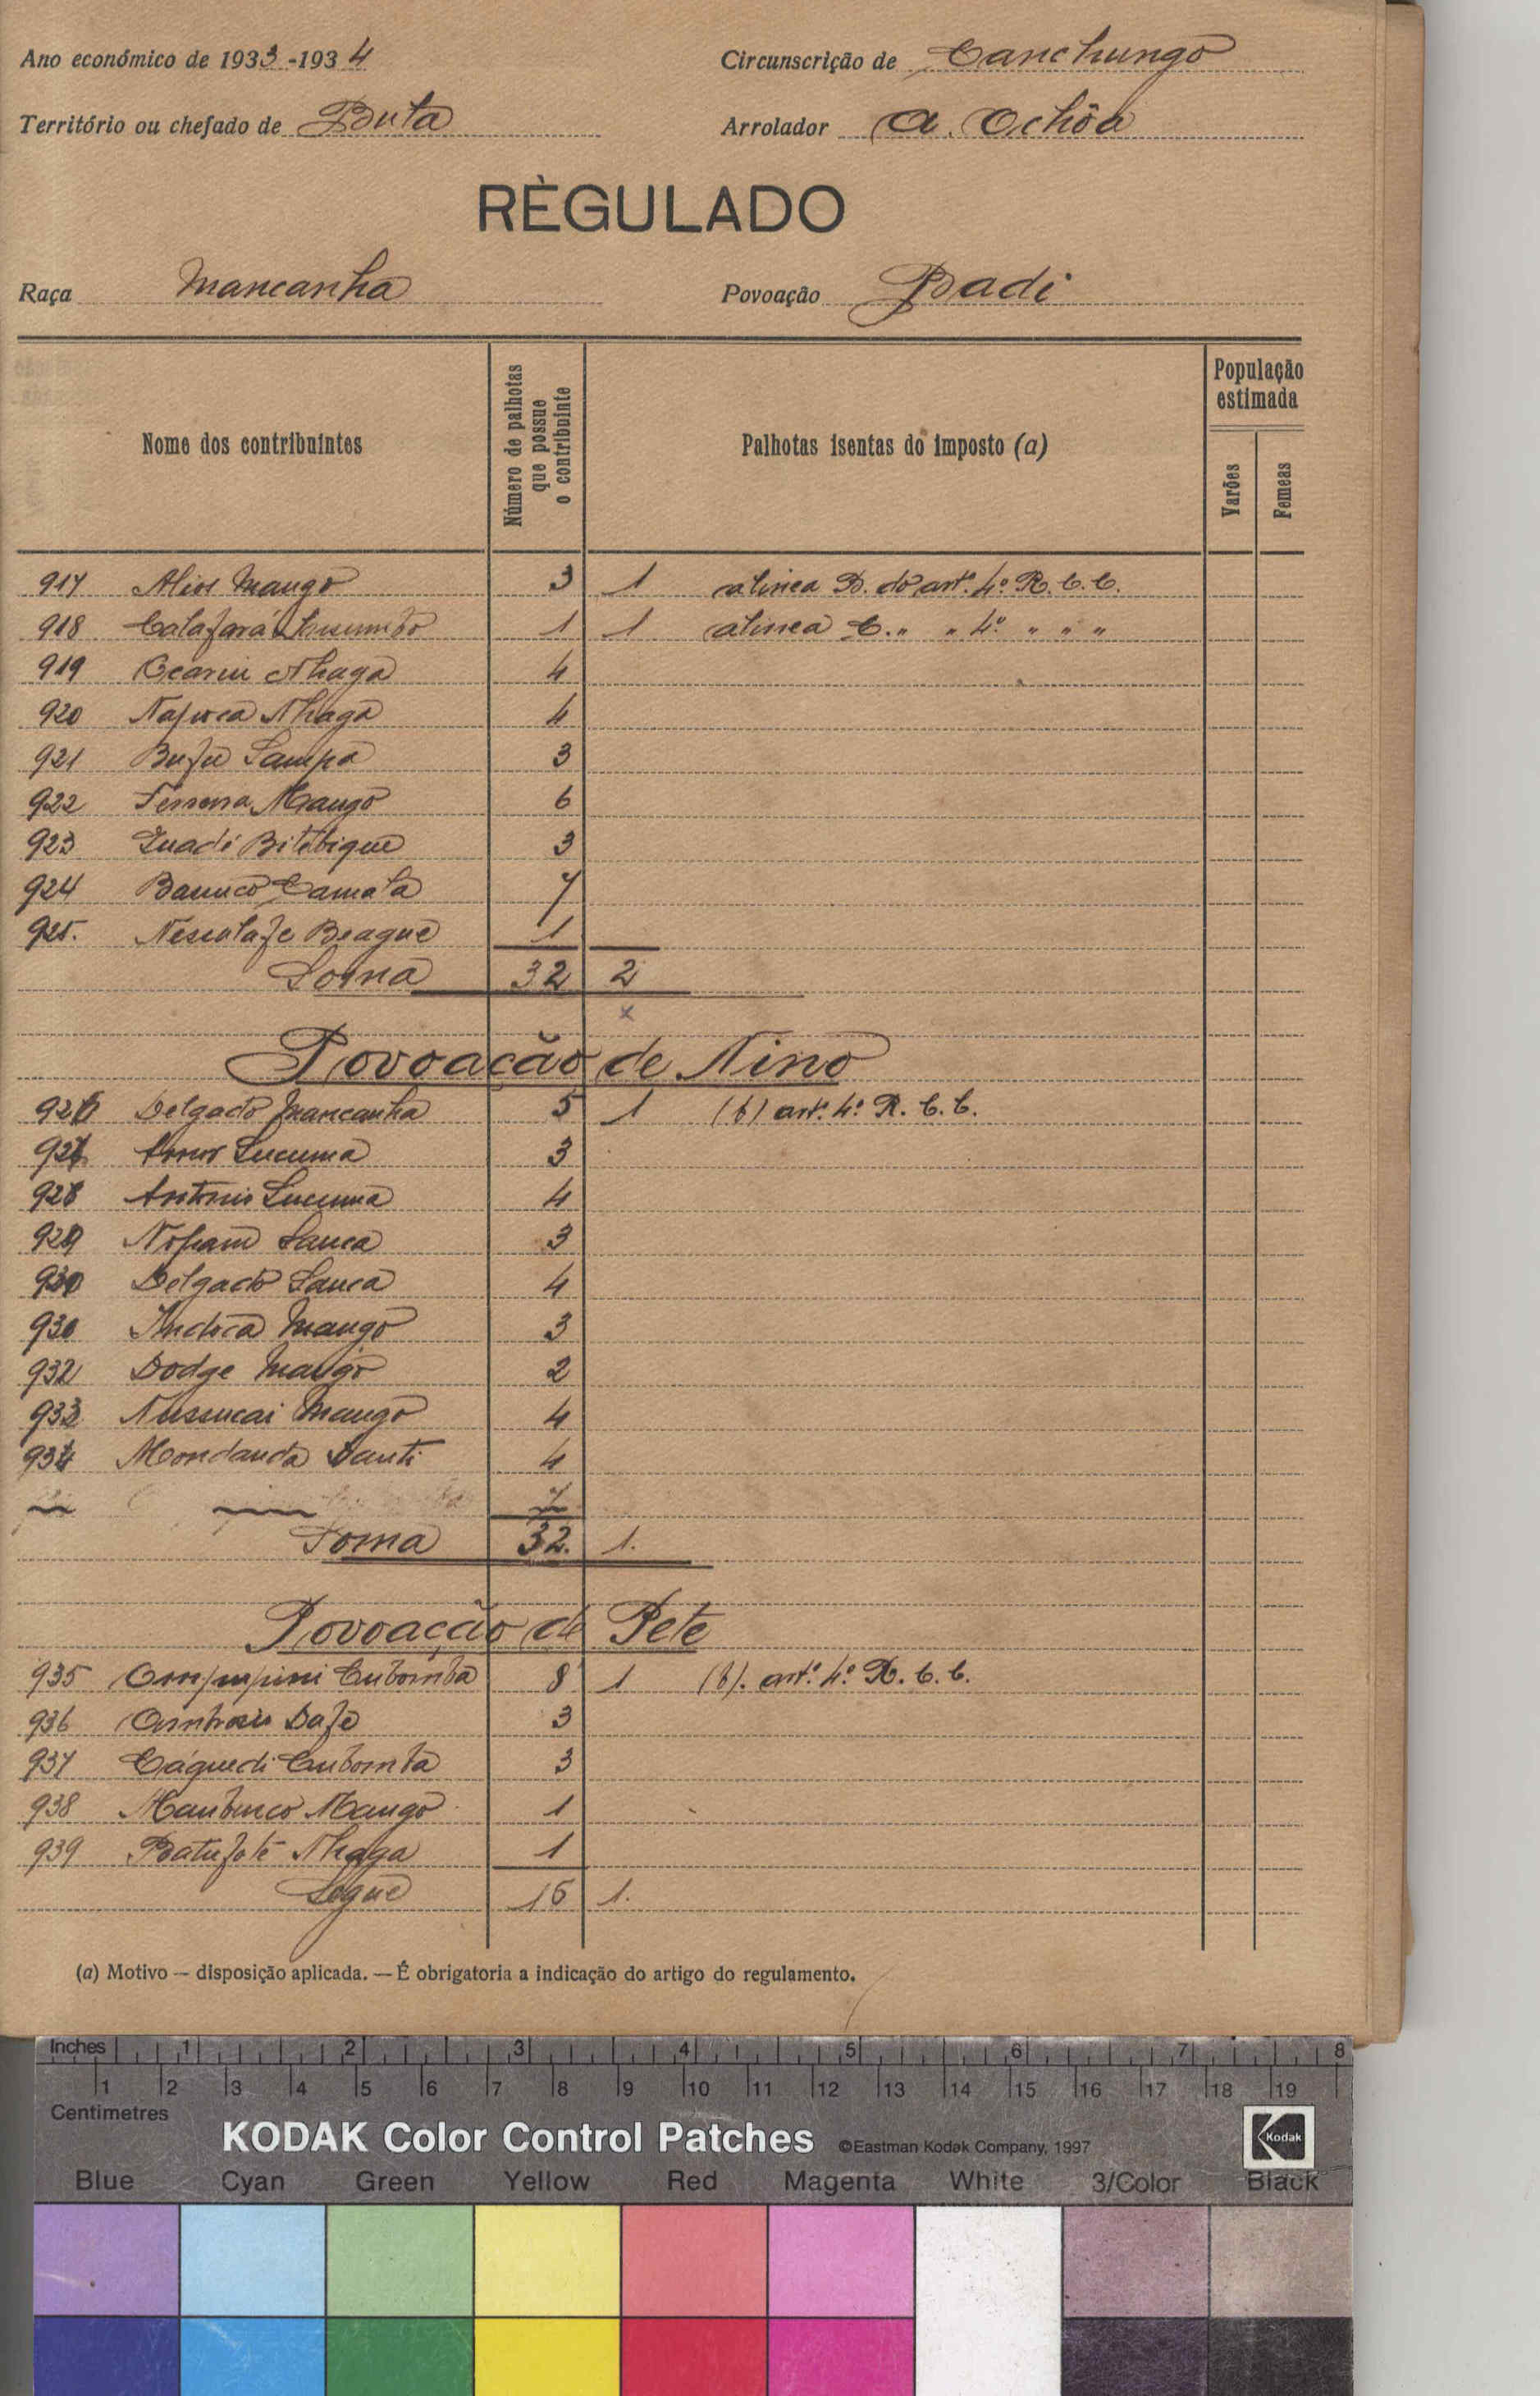 Ano económico de 1933-1934 Circunscrição de Canchungo
Território ou chefado de Buta Arrolador A. Ochôa
RÈGULADO
Raça Mancanha Povoação Badi
Nome dos contribuintes Número de palhotas que possue o contribuinte Palhotas isentas do imposto (a) População estimada Varões Femeas
917 Mango 3 1 alinea B. do artº. 4º R. C. C.
918 1 1 alinea C. " " 4º " " "
919 Nhaga 4
920 Nhaga 4
921 Bufu Sampa 3
922 Mango 6
923 Bitebique 3
924 Camata 7
925. Beague 1
Soma 32 2
x
Povoação de Nino
926 Delgado Mancanha 5 1 (b) artº. 4º R. C. C.
927 Lucuma 3
928 Antonio Lucuma 4
929 Sanca 3
930 Delgado Sanca 4
Mango 3
932 Dodge Mango 2
933 Nussucai Mango 4
934 Mondanda Danti 4
Soma 32. 1.
Povoação de Pete
935 Cubomba 8 1 (b). artº. 4º R. C. C.
936 Ambrosio Dafe 3
937 Cáguedi Cubomba 3
938 Mango 1
939 Batufote Nhaga 1
Segue 16 1.
(a) Motivo — disposição aplicada. — É obrigatoria a indicação do artigo do regulamento.
Inches 1 2 3 4 5 6 7 8
1 2 3 4 5 6 7 8 9 10 11 12 13 14 15 16 17 18 19
Centimetres
KODAK Color Control Patches ©Eastman Kodak Company, 1997 Kodak
Blue Cyan Green Yellow Red Magenta White 3/Color Black